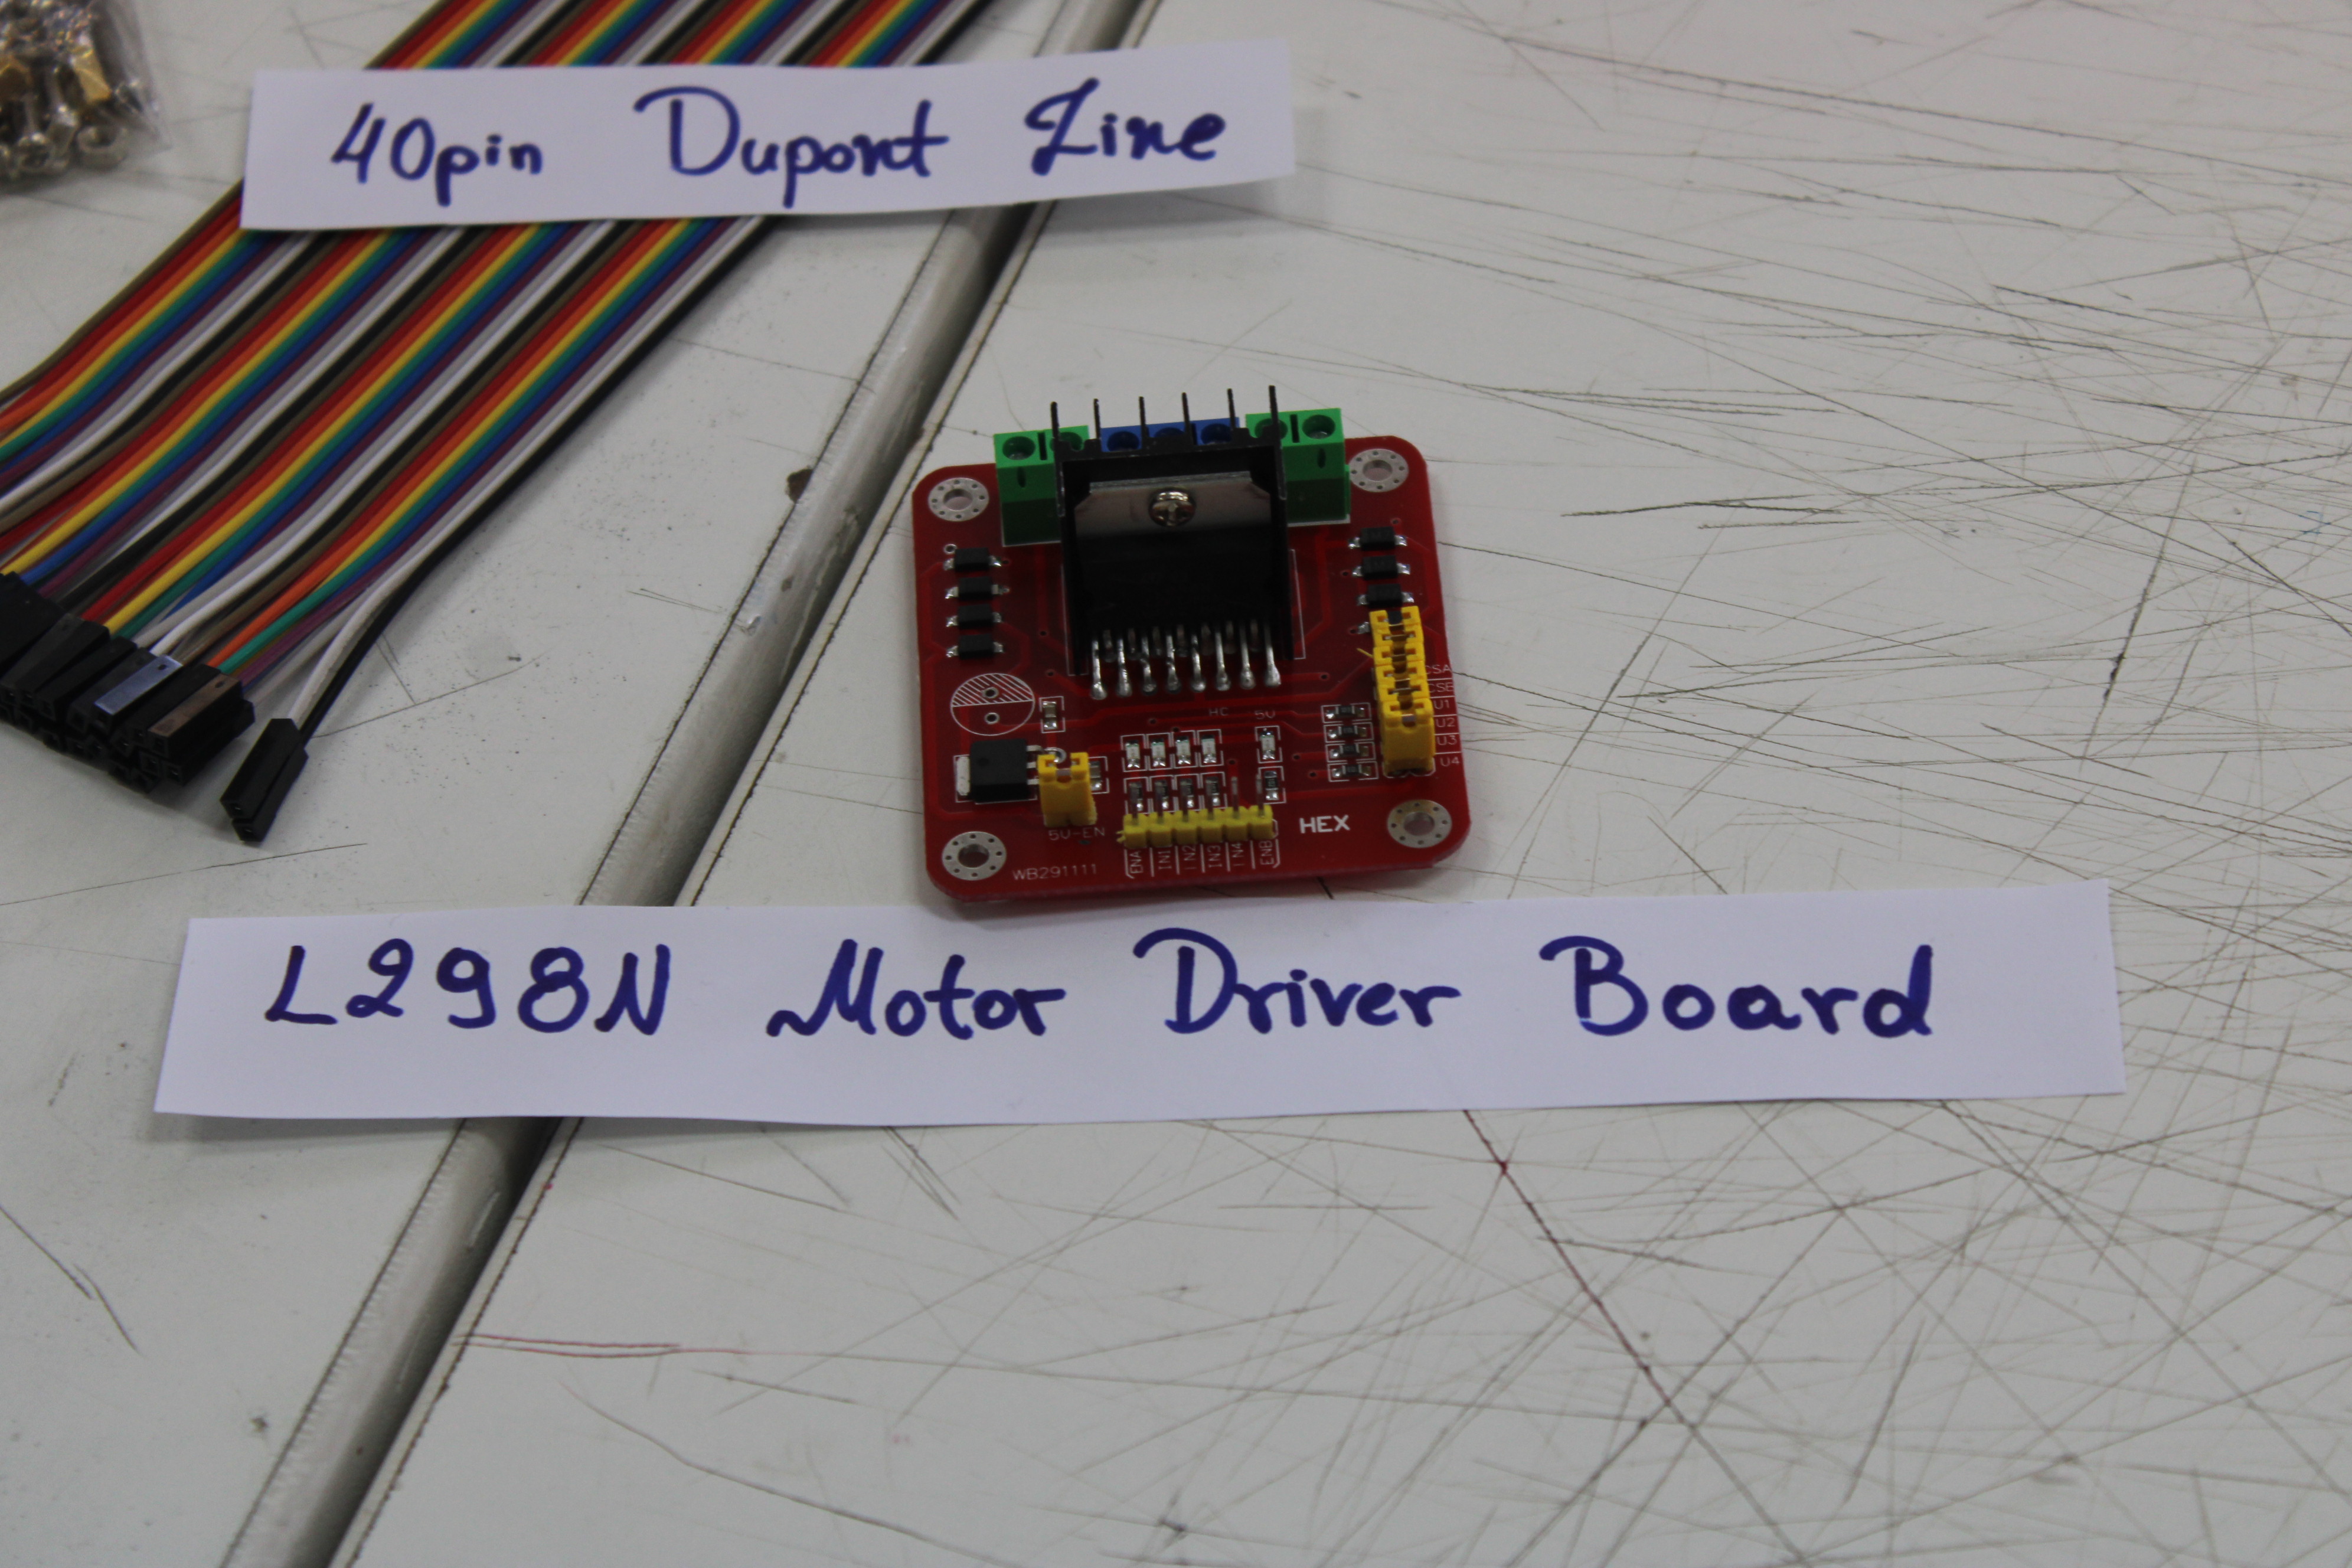 40pin Dupont Line
CSA
CSB
U1
U2
U3
U4
5V
5V-EN
HEX
WB291111
ENA
IN1
IN2
IN3
IN4
ENB
L298N Motor Driver Board